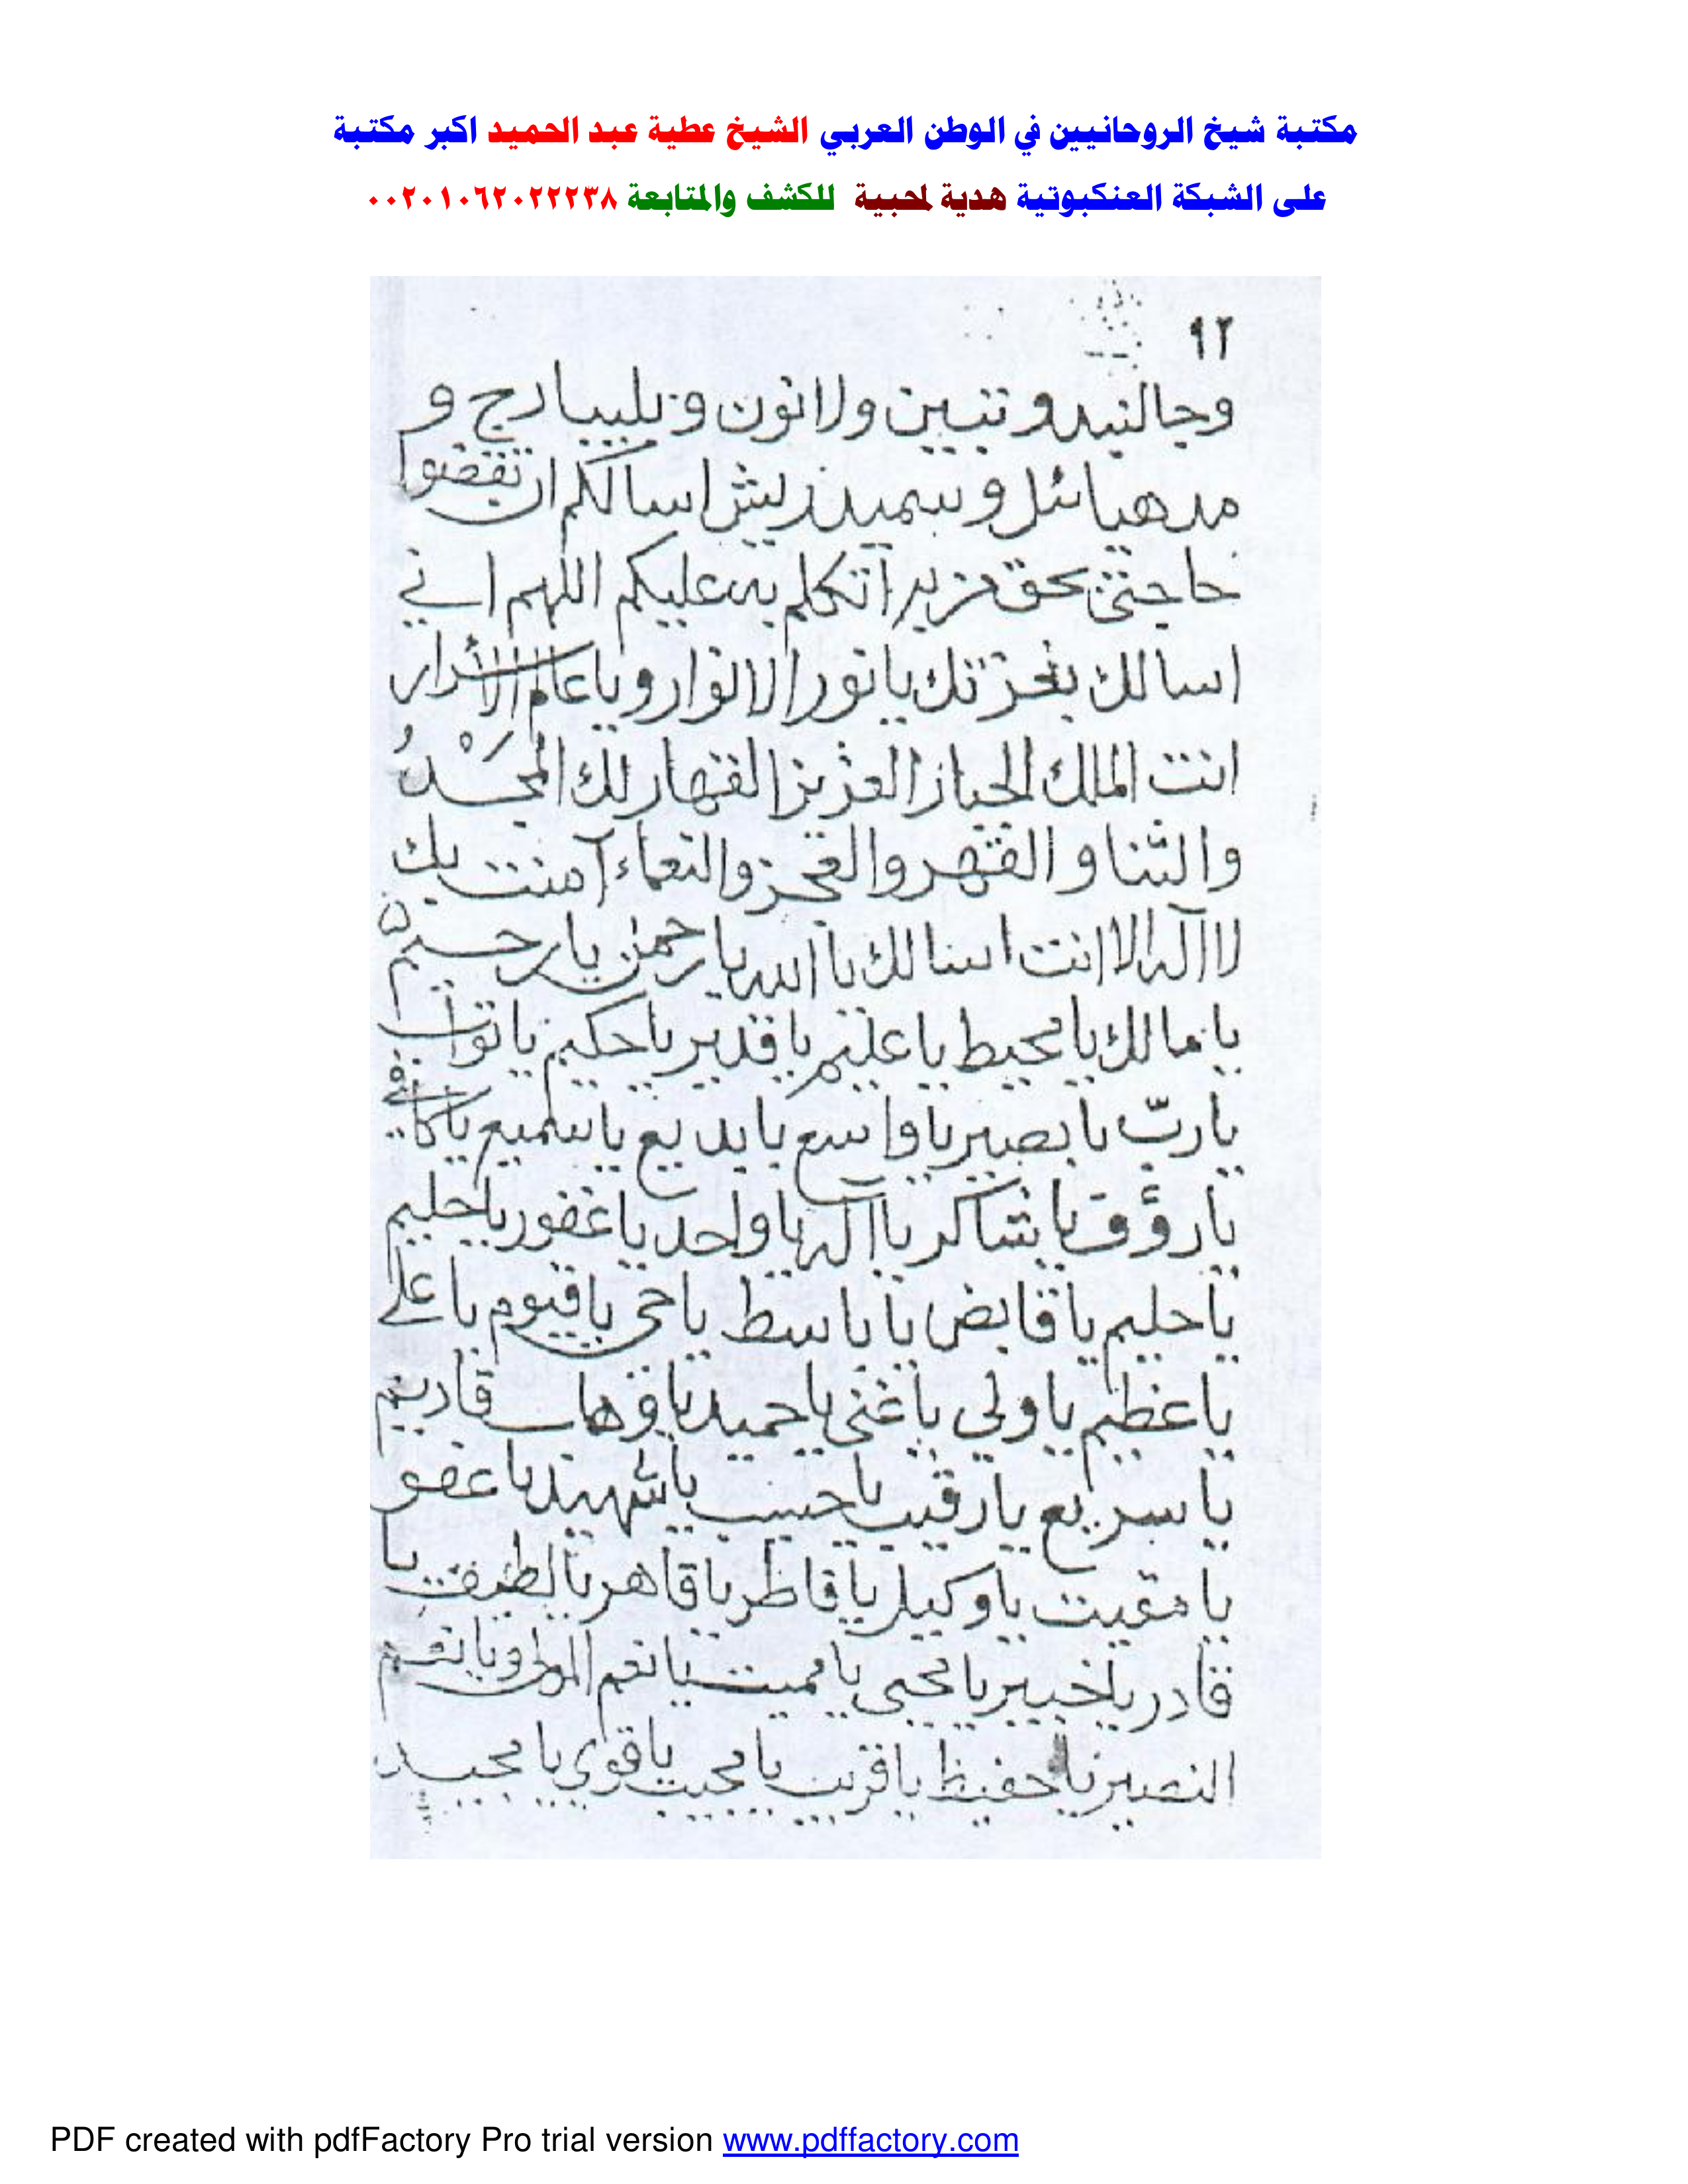 مكتبة شيخ الروحانيين في الوطن العربي الشيخ عطية عبد الحميد اكبر مكتبة
على الشبكة العنكبوتية هدية لمحبية للكشف والمتابعة ٠٠٢٠١٠٦٢٠٢٢٢٣٨
٩٢
ولانون و
اسالكم ان تقضوا
حاجتي بحق اتكلم به عليكم اللهم اني
اسالك بعزتك يا نور الانوار ويا عالم الاسرار
انت الملك الجبار العزيز القهار لك المجد
والثنا و القهر والنعماء آمنت بك
لا اله الا انت اسالك يا الله يا رحمن يا رحيم
يا مالك يا محيط يا عليم يا قدير يا حكيم يا تواب
يا ربّ يا بصير يا واسع يا بديع يا سميع يا كافي
يا رؤف يا شاكر يا اله يا واحد يا غفور يا حليم
يا حليم يا قابض يا باسط يا حي يا قيوم يا علي
يا عظيم يا ولي يا غني يا حميد يا وهاب
يا سريع يا رقيب يا حبيب يا شهيد يا عفو
يا مقيت يا وكيل يا فاطر يا قاهر يا لطيف يا
قادر يا خبير يا محيي يا مميت يا نعم المولى ويا نعم
النصير يا حفيظ يا قريب يا مجيب يا قوي يا مجيد
PDF created with pdfFactory Pro trial version www.pdffactory.com